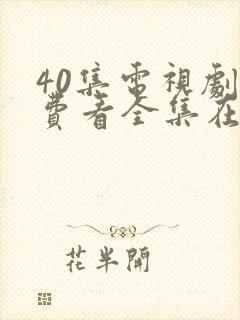 40集電視劇
費看全集在
花半開